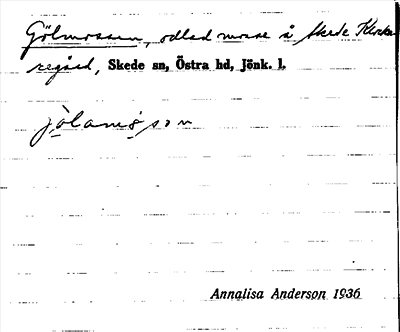 Gölmossen, odlad mosse å Skede Klocka-
regård, Skede sn, Östra hd, Jönk. l.
jölamåsan
Annalisa Anderson 1936